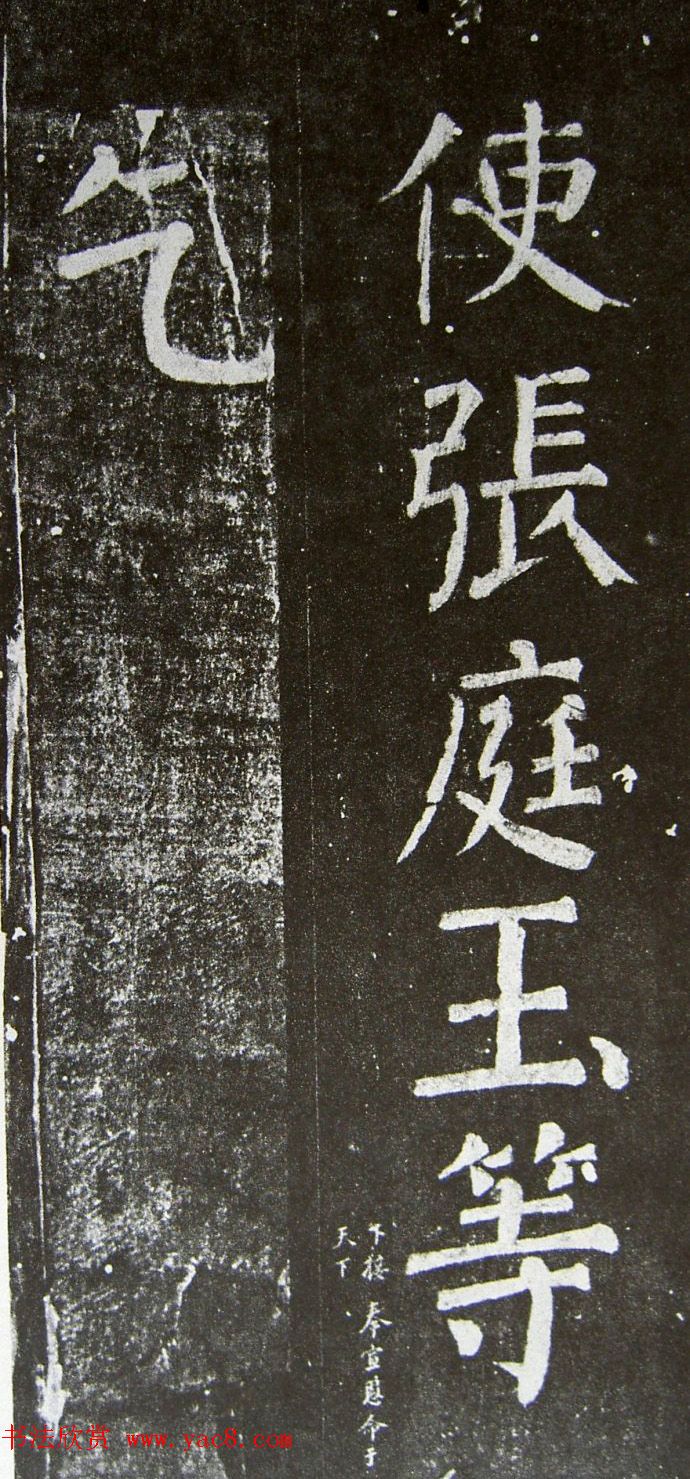 使張庭玉等
下接 奉宣慰命于
天下
乞
书法欣赏 www.yac8.com